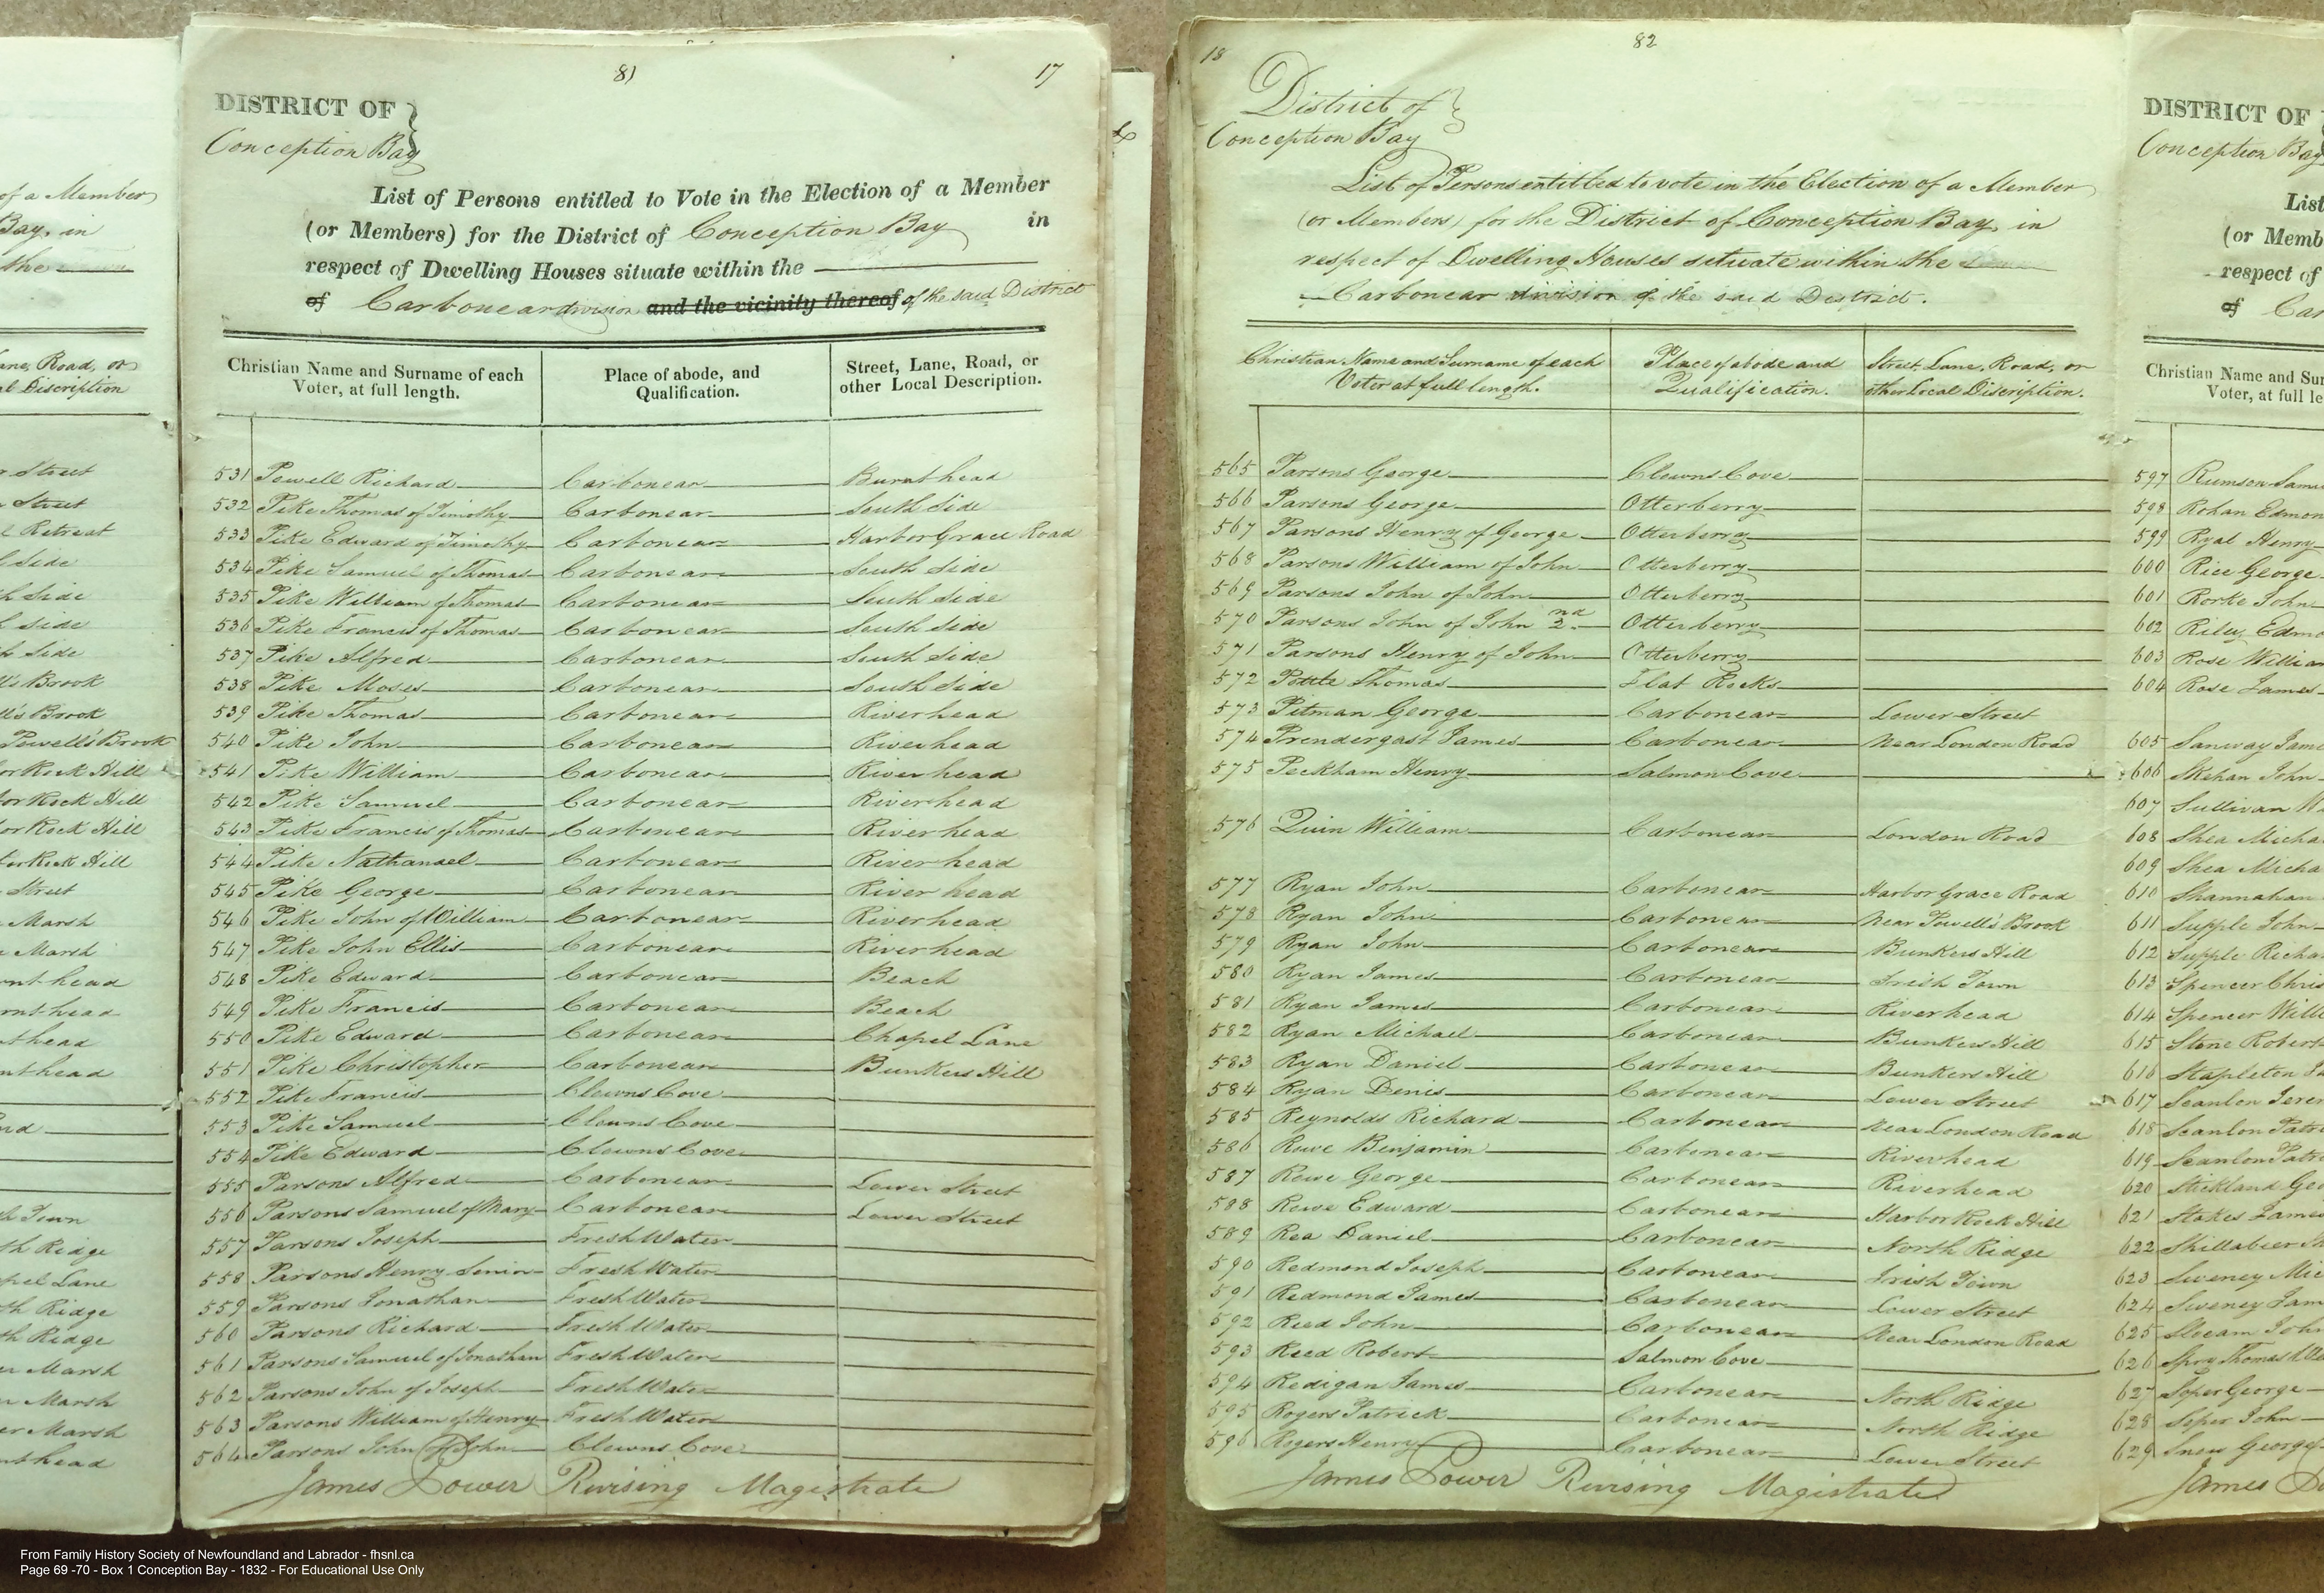 of a Member
Bay, in
the
Lane, Road, or
al Discription
Street
Street
Retreat
Side
Side
side
Side
Brook
Brook
Powell's Brook
or Rock Hill
or Rock Hill
or Rock Hill
or Rock Hill
Street
Marsh
Marsh
nt head
rnt head
thead
nt head
Town
th Ridge
pel Lane
th Ridge
th Ridge
Marsh
Marsh
er Marsh
nt head
81
17
DISTRICT OF
Conception Bay
List of Persons entitled to Vote in the Election of a Member
(or Members) for the District of Conception Bay in
respect of Dwelling Houses situate within the
of Carbonear division and the vicinity thereof of the said District
Christian Name and Surname of each Voter, at full length.
Place of abode, and Qualification.
Street, Lane, Road, or other Local Description.
531 Powell Richard Carbonear Burnt head
532 Pike Thomas of Timothy Carbonear South Side
533 Pike Edward of Timothy Carbonear Harbor Grace Road
534 Pike Samuel of Thomas Carbonear South Side
535 Pike William of Thomas Carbonear South Side
536 Pike Francis of Thomas Carbonear South Side
537 Pike Alfred Carbonear South Side
538 Pike Moses Carbonear South Side
539 Pike Thomas Carbonear Riverhead
540 Pike John Carbonear Riverhead
541 Pike William Carbonear Riverhead
542 Pike Samuel Carbonear Riverhead
543 Pike Francis of Thomas Carbonear Riverhead
544 Pike Nathanael Carbonear Riverhead
545 Pike George Carbonear River head
546 Pike John of William Carbonear Riverhead
547 Pike John Ellis Carbonear Riverhead
548 Pike Edward Carbonear Beach
549 Pike Francis Carbonear Beach
550 Pike Edward Carbonear Chapel Lane
551 Pike Christopher Carbonear Bunkers Hill
552 Pike Francis Clowns Cove
553 Pike Samuel Clowns Cove
554 Pike Edward Clowns Cove
555 Parsons Alfred Carbonear Lower Street
556 Parsons Samuel of Mary Carbonear Lower Street
557 Parsons Joseph Fresh Water
558 Parsons Henry Senior Fresh Water
559 Parsons Jonathan Fresh Water
560 Parsons Richard Fresh Water
561 Parsons Samuel of Jonathan Fresh Water
562 Parsons John of Joseph Fresh Water
563 Parsons William of Henry Fresh Water
564 Parsons John of John Clowns Cove
James Power Revising Magistrate
18
82
District of
Conception Bay
List of Persons entitled to vote in the Election of a Member
(or Members) for the District of Conception Bay, in
respect of Dwelling Houses situate within the
Carbonear division of the said District.
Christian Name and Surname of each Voter at full length.
Place of abode and Qualification.
Street, Lane, Road, or other Local Discription.
565 Parsons George Clowns Cove
566 Parsons George Otterberry
567 Parsons Henry of George Otterberry
568 Parsons William of John Otterberry
569 Parsons John of John Otterberry
570 Parsons John of John 2nd Otterberry
571 Parsons Henry of John Otterberry
572 Pottle Thomas Flat Rocks
573 Pitman George Carbonear Lower Street
574 Prendergast James Carbonear Near London Road
575 Peckham Henry Salmon Cove
576 Quin William Carbonear London Road
577 Ryan John Carbonear Harbor Grace Road
578 Ryan John Carbonear Near Powell's Brook
579 Ryan John Carbonear Bunkers Hill
580 Ryan James Carbonear Irish Town
581 Ryan James Carbonear Riverhead
582 Ryan Michael Carbonear Bunkers Hill
583 Ryan Daniel Carbonear Bunkers Hill
584 Ryan Denis Carbonear Lower Street
585 Reynolds Richard Carbonear Near London Road
586 Rowe Benjamin Carbonear Riverhead
587 Rowe George Carbonear Riverhead
588 Rowe Edward Carbonear Harbor Rock Hill
589 Rea Daniel Carbonear North Ridge
590 Redmond Joseph Carbonear Irish Town
591 Redmond James Carbonear Lower Street
592 Reed John Carbonear Near London Road
593 Reed Robert Salmon Cove
594 Redigan James Carbonear North Ridge
595 Rogers Patrick Carbonear North Ridge
596 Rogers Henry Carbonear Lower Street
James Power Revising Magistrate
DISTRICT OF
Conception Bay
List
(or Memb
respect of
of Car
Christian Name and Sur
Voter, at full le
597 Rumson Samu
598 Rohan Edmon
599 Ryal Henry
600 Rice George
601 Rorke John
602 Riley Edmo
603 Rose William
604 Rose James
605 Sanway Jame
606 Skehan John
607 Sullivan W
608 Shea Micha
609 Shea Micha
610 Shannahan
611 Supple John
612 Supple Richa
613 Spencer Chris
614 Spencer Willi
615 Stone Robert
616 Stapleton Ja
617 Scanlon Jerem
618 Scanlon Patri
619 Scanlon Patri
620 Stickland Geo
621 Stokes James
622 Shillabeer
623 Sweney Mic
624 Sweney Jam
625 Slocam John
626 Spry Thomas
627 Soper George
628 Soper John
629 Snow George
James
From Family History Society of Newfoundland and Labrador - fhsnl.ca
Page 69 -70 - Box 1 Conception Bay - 1832 - For Educational Use Only